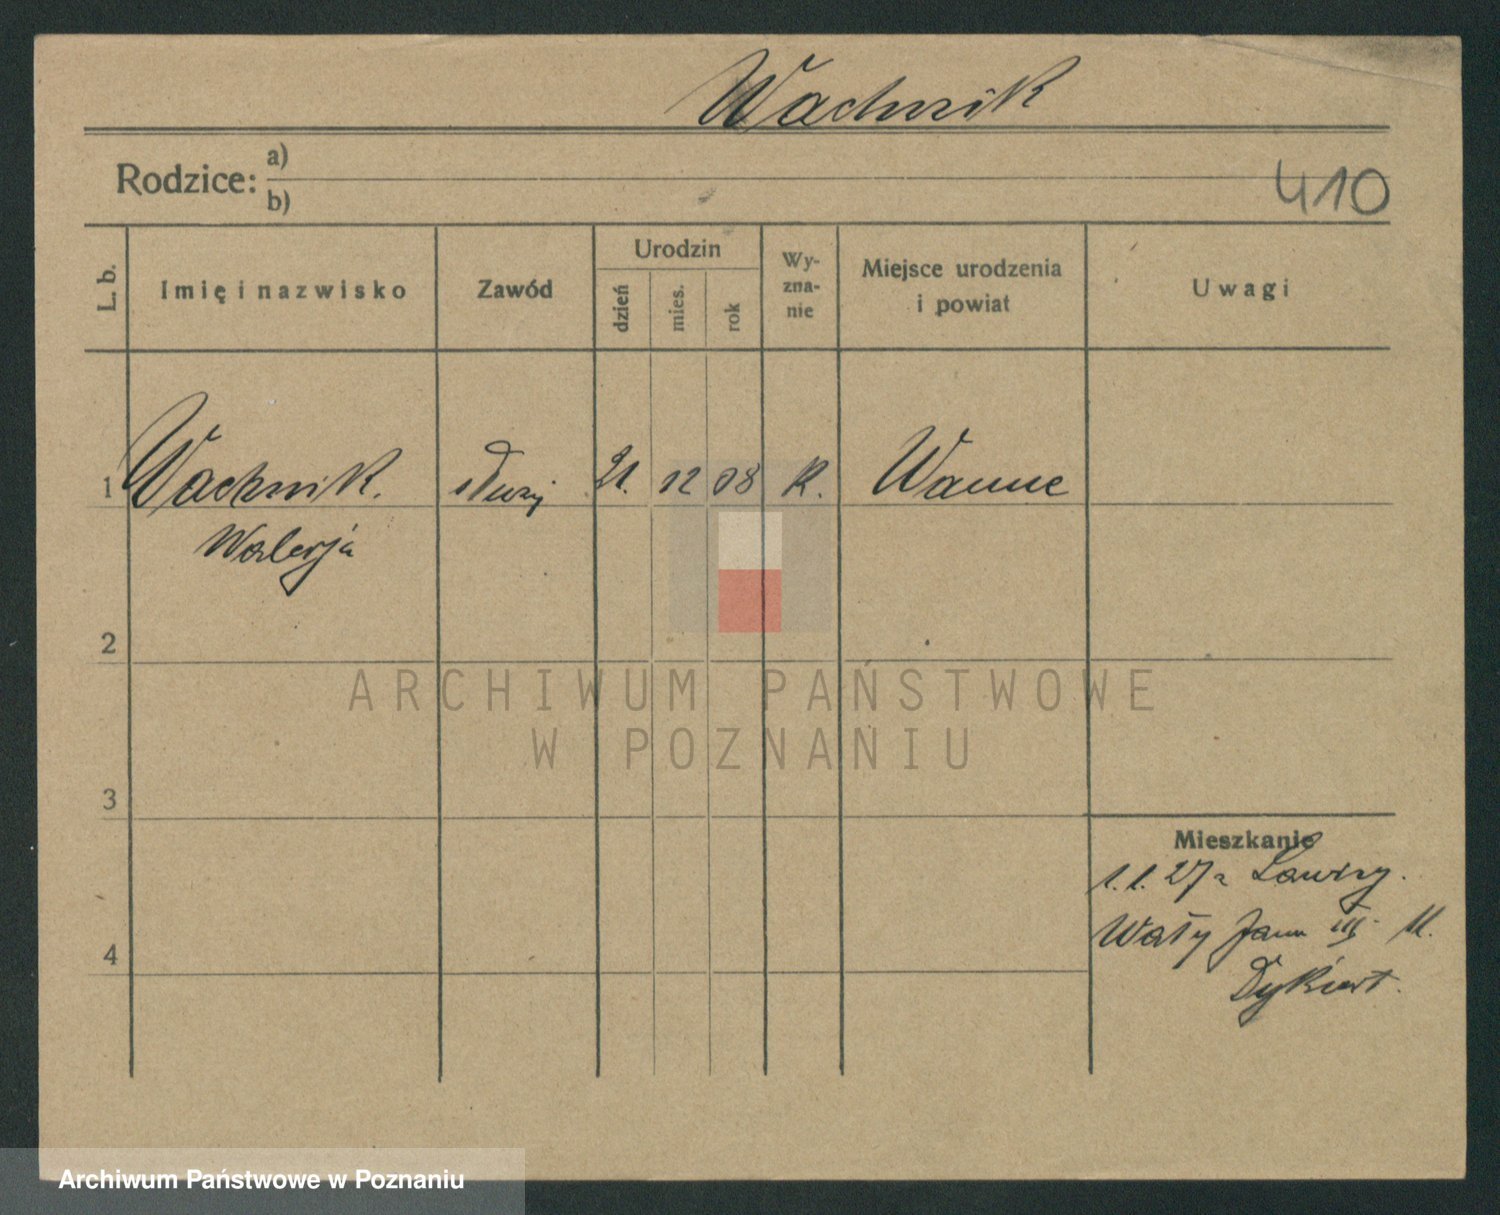 Wachnik
Rodzice: a)
b)
410
L. b. Imię i nazwisko Zawód Urodzin dzień mies. rok Wy-zna-nie Miejsce urodzenia i powiat Uwagi
1 Wachnik. 21. 12 08 R. Wanne
Walerja
2
3
4
Mieszkanie
1.1.27 z Ławicy.
Wały Jana III. 11.
Dykiert.
ARCHIWUM PAŃSTWOWE
W POZNANIU
Archiwum Państwowe w Poznaniu